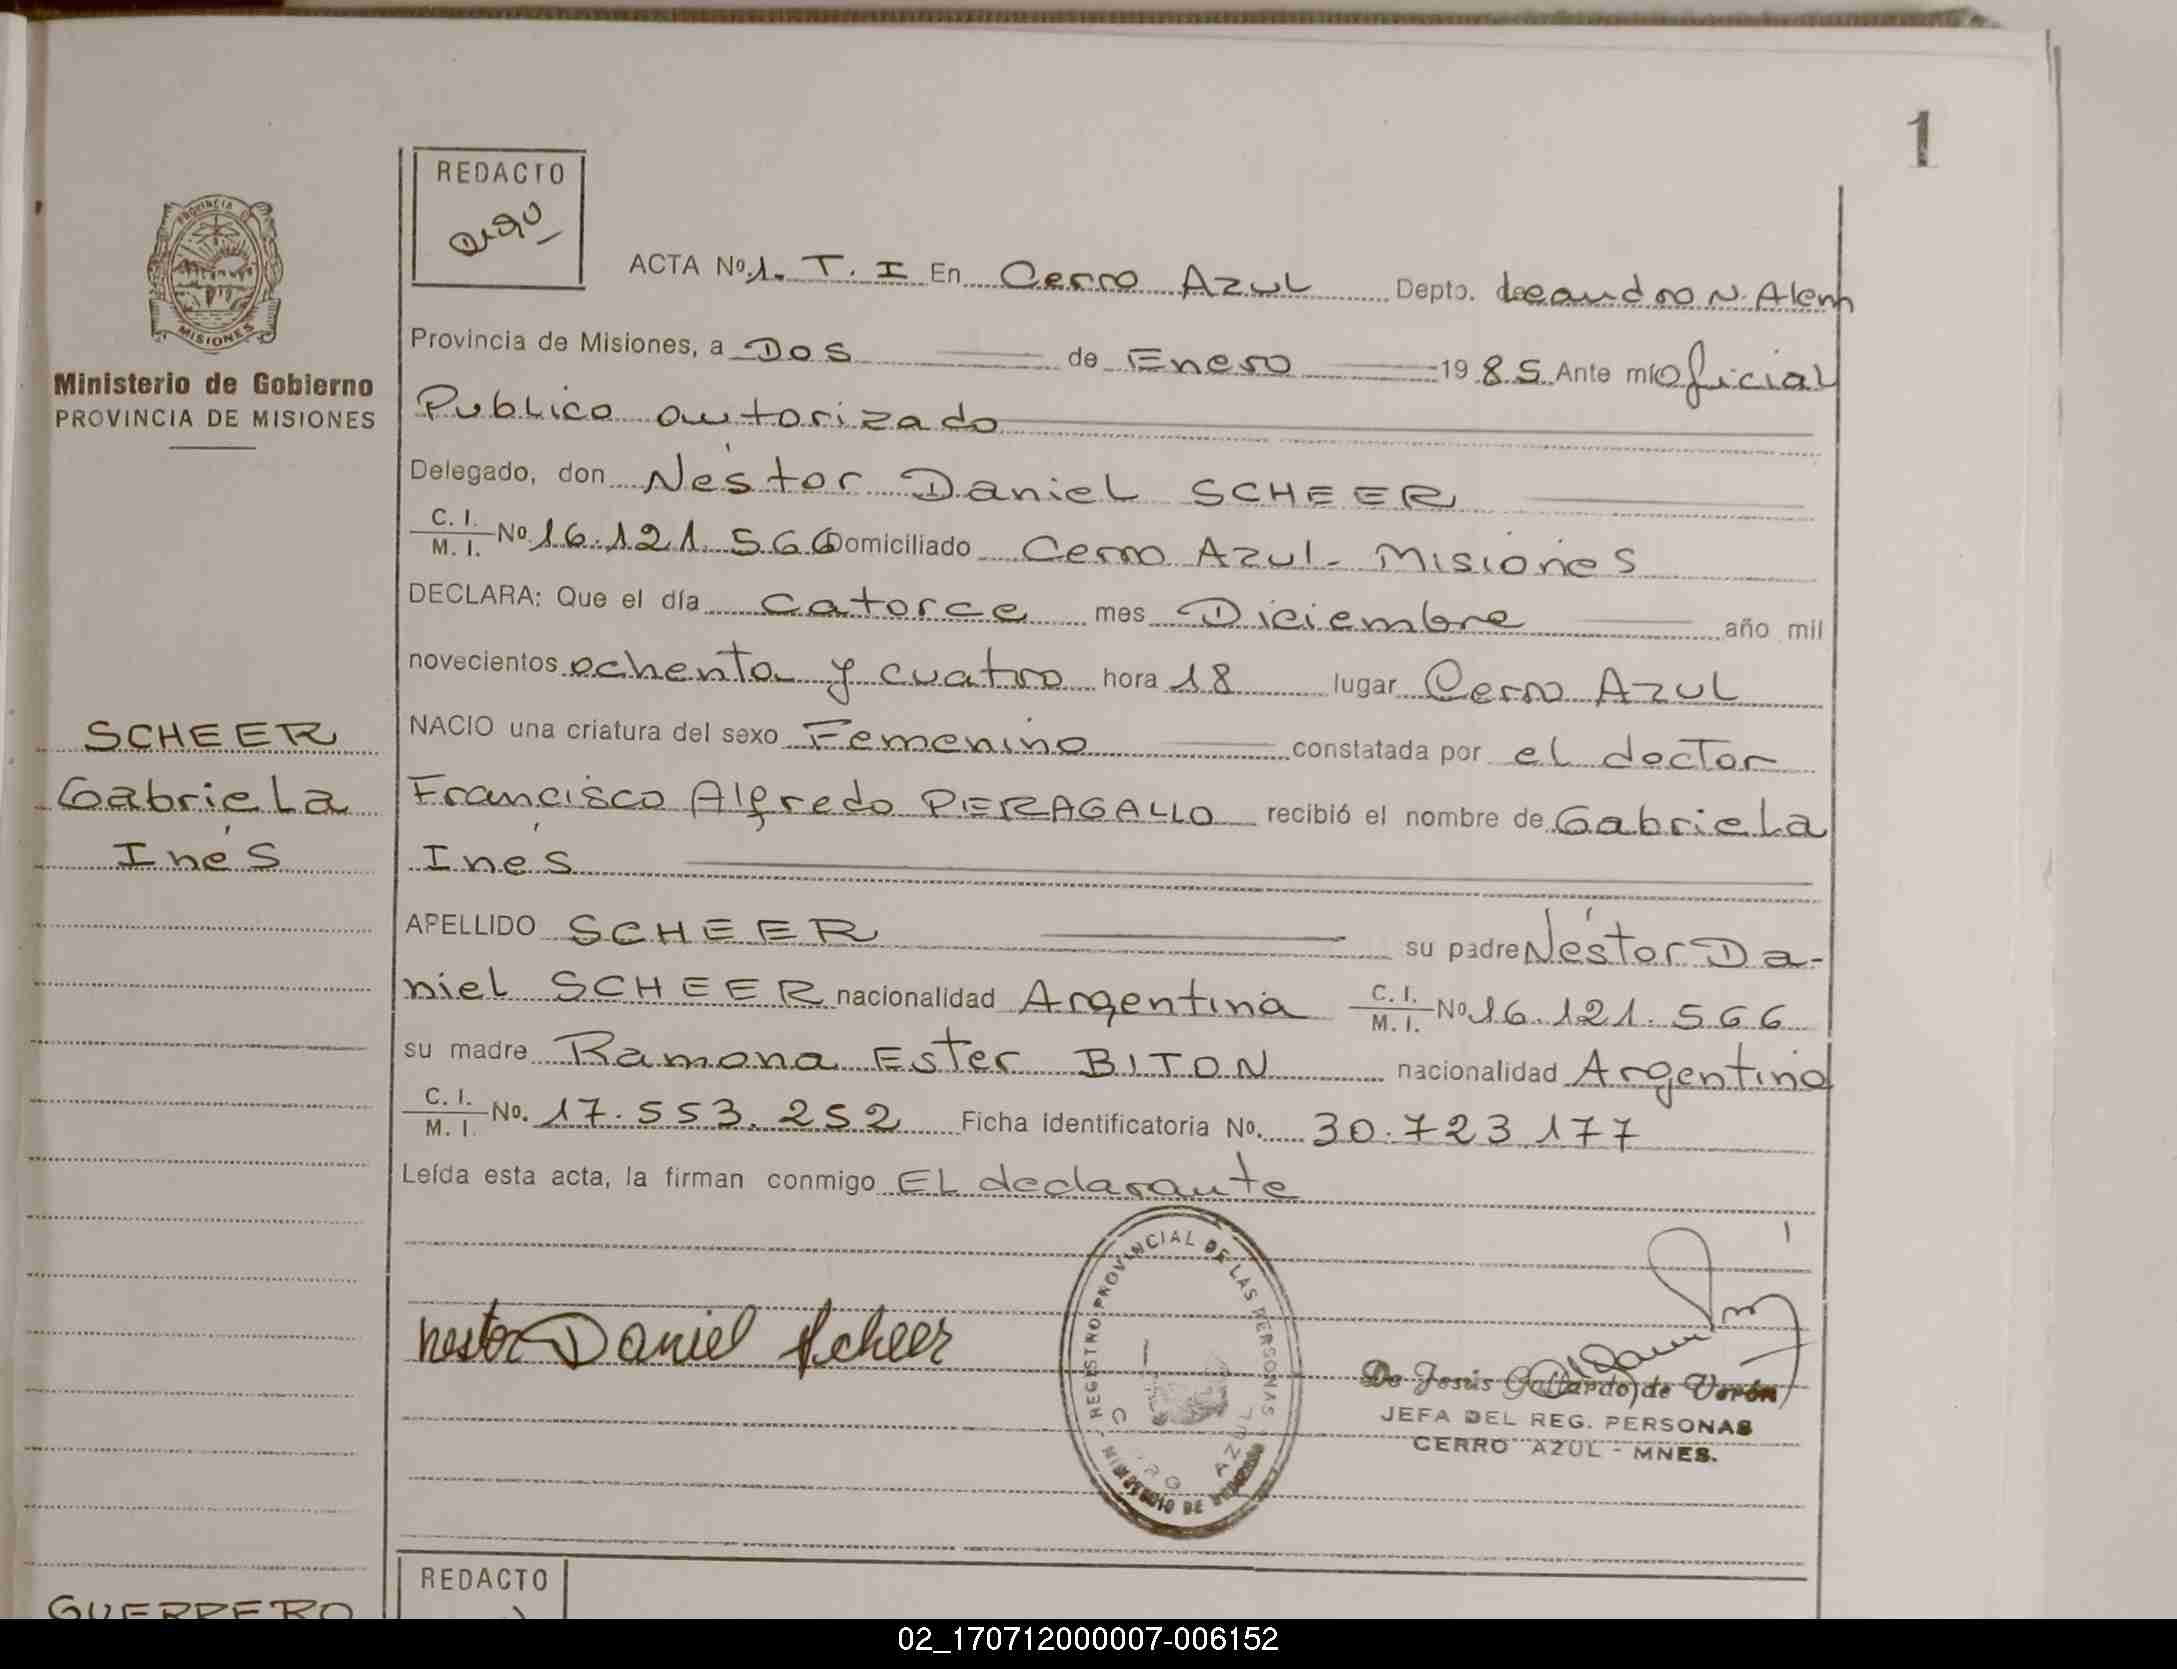 1
REDACTO
ACTA Nº 1. T. I En Cerro Azul Depto. de Leandro N. Alem
PROVINCIA D
MISIONES
Ministerio de Gobierno
PROVINCIA DE MISIONES
Provincia de Misiones, a Dos de Enero 1985 Ante mí Oficial
Publico autorizado
Delegado, don Néstor Daniel SCHEER
C. I. M. I. Nº 16.121.566 Domiciliado Cerro Azul - Misiones
DECLARA: Que el día catorce mes Diciembre año mil
novecientos ochenta y cuatro hora 18 lugar Cerro Azul
SCHEER
Gabriela
Inés
NACIO una criatura del sexo Femenino constatada por el doctor
Francisco Alfredo PERAGALLO recibió el nombre de Gabriela
Inés
APELLIDO SCHEER su padre Néstor Da-
niel SCHEER nacionalidad Argentina C. I. M. I. Nº 16.121.566
su madre Ramona Ester BITON nacionalidad Argentina
C. I. M. I. No. 17.553.252 Ficha identificatoria No. 30.723.177
Leída esta acta, la firman conmigo EL declarante
REGISTRO PROVINCIAL DE LAS PERSONAS
AZUL
nestor Daniel Scheer
De Jesús Gallardo de Verón
JEFA DEL REG. PERSONAS
CERRO AZUL - MNES.
REDACTO
GUERRERO
02_170712000007-006152